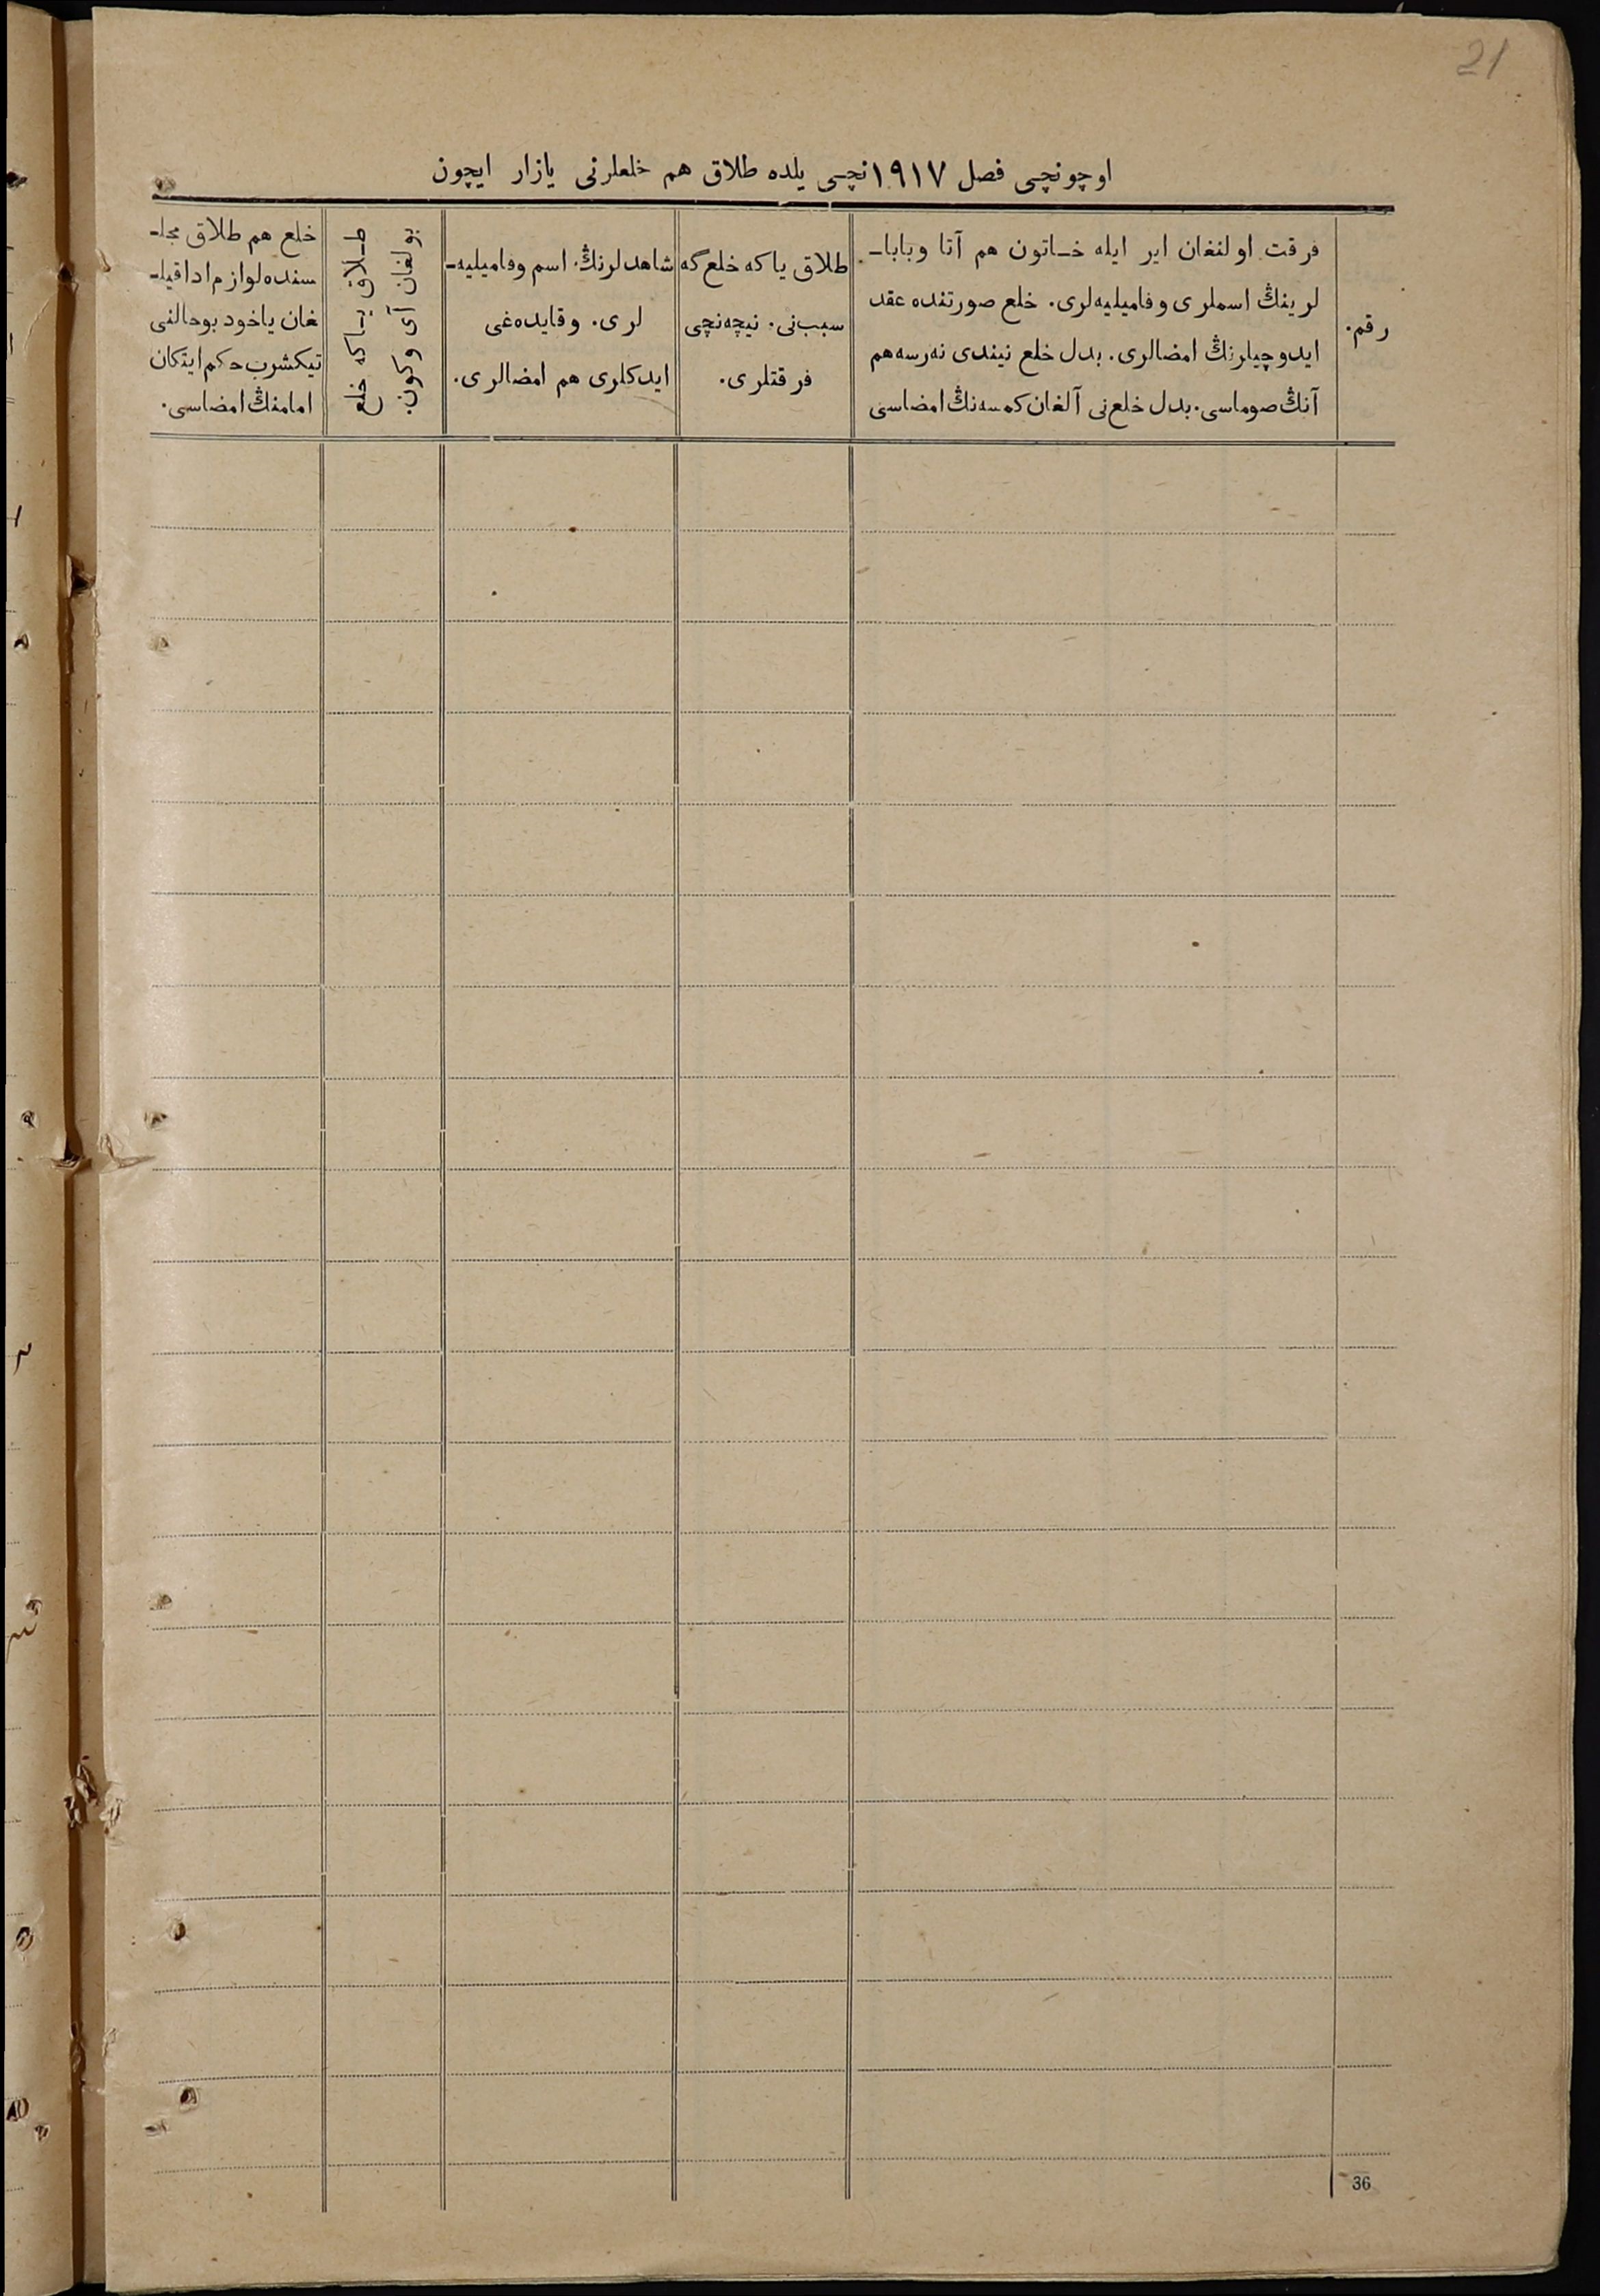 21
اوچونچی فصل ١٩١٧نچی یلده طلاق هم خلعلرنی یازار ایچون
رقم.
فرقت اولنغان ایر ایله خـاتون هم آتا وبابا-
لرینڭ اسملری وفامیلیه‌لری. خلع صورتنده عقد
ایدوچیلرنڭ امضالری. بدل خلع نیندی نه‌رسه‌هم
آنڭ صوماسی. بدل خلع‌نی آلغان کمسه‌نڭ امضاسی
طلاق یاکه خلع‌گه
سبب‌نی. نیچه‌نچی
فرقتلری.
شاهدلرنڭ اسم وفامیلیه-
لری. وقایده‌غی
ایدکلری هم امضالری.
طـلاق یـاکه خلع
بولغان آی وکون.
خلع هم طلاق مجلـ
سنده لوازم ادا قیلـ
غان یاخود بوحالنی
تیکشرب حکم ایتکان
امامنڭ امضاسی.
36